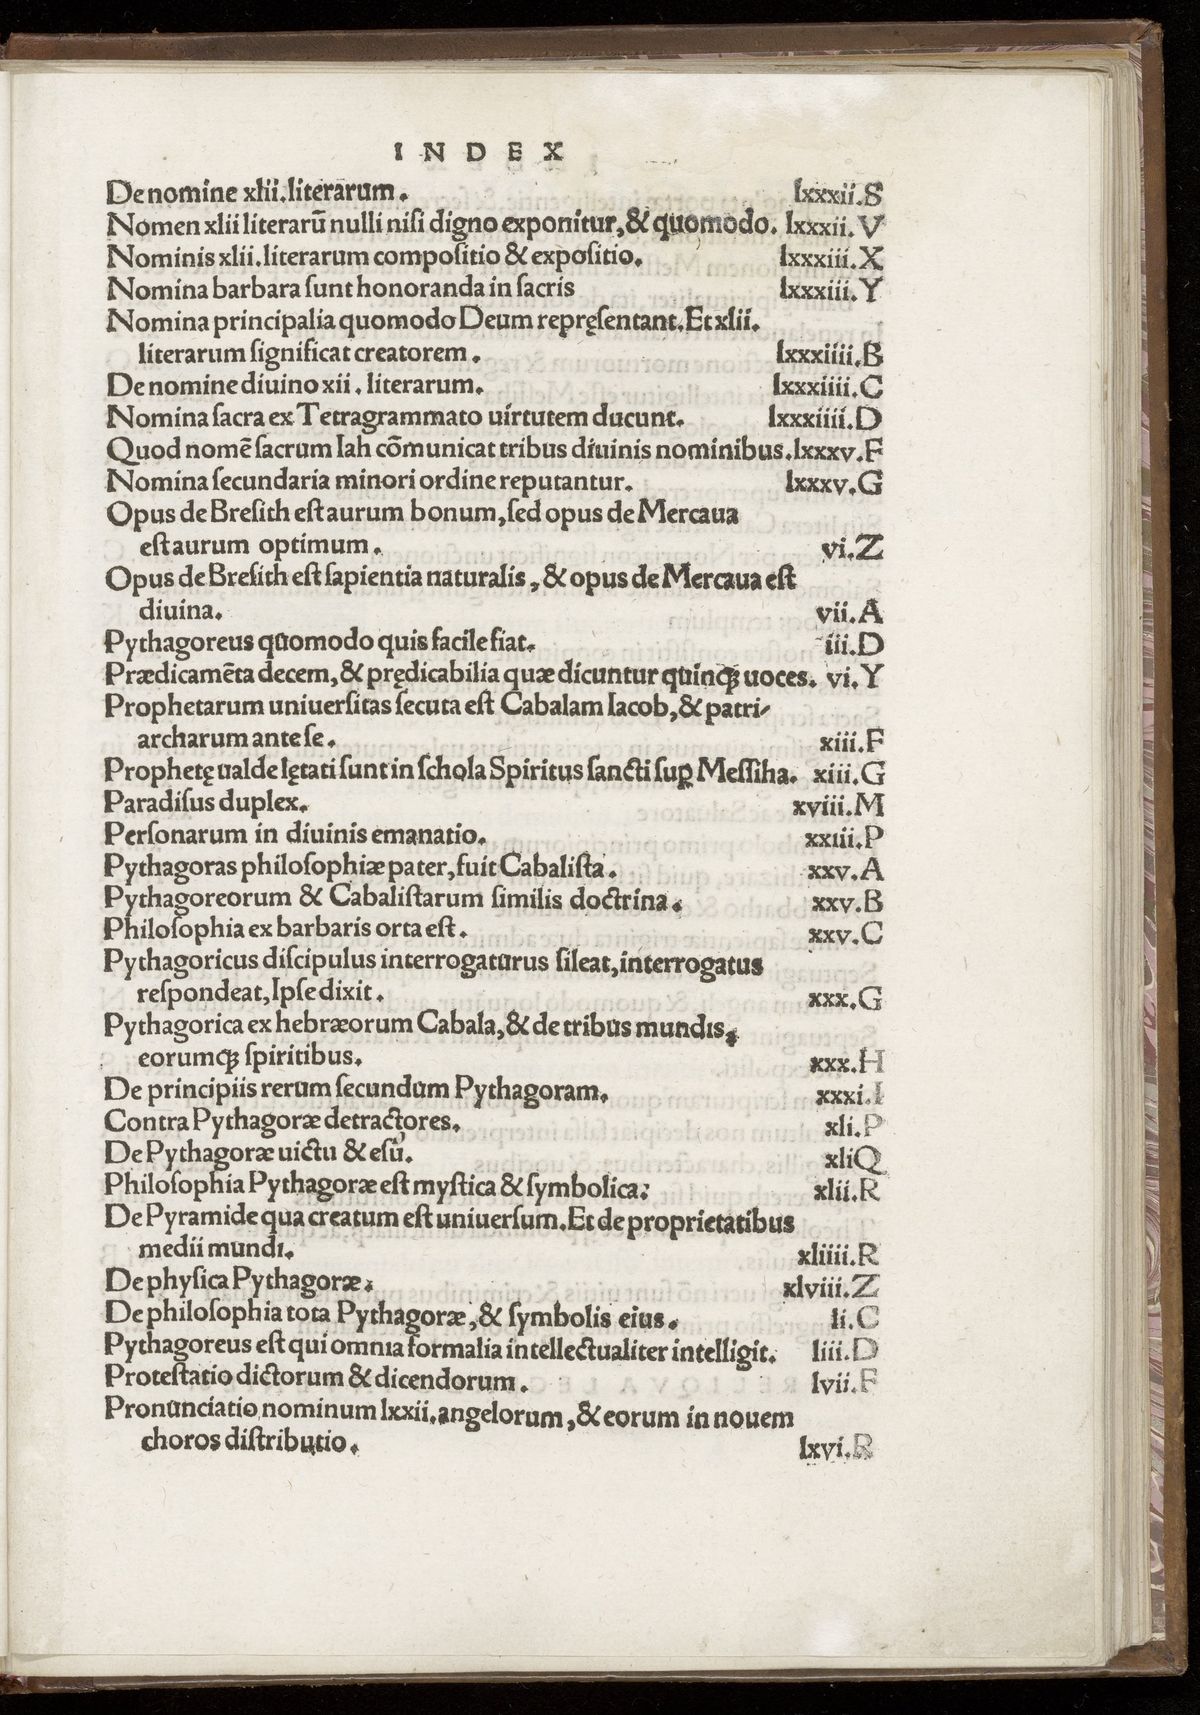 INDEX
De nomine xlii.literarum. lxxxii.S
Nomen xlii literarū nulli nisi digno exponitur,& quomodo. lxxxii.V
Nominis xlii.literarum compositio & expositio. lxxxiii.X
Nomina barbara sunt honoranda in sacris lxxxiii.Y
Nomina principalia quomodo Deum repręsentant.Et xlii.
literarum significat creatorem. lxxxiiii.B
De nomine diuino xii. literarum. lxxxiiii.C
Nomina sacra ex Tetragrammato uirtutem ducunt. lxxxiiii.D
Quod nomē sacrum Iah cōmunicat tribus diuinis nominibus.lxxxv.F
Nomina secundaria minori ordine reputantur. lxxxv.G
Opus de Bresith est aurum bonum,sed opus de Mercaua
est aurum optimum. vi.Z
Opus de Bresith est sapientia naturalis, & opus de Mercaua est
diuina. vii.A
Pythagoreus quomodo quis facile fiat. iii.D
Prædicamēta decem,& prędicabilia quæ dicuntur quinqꝫ uoces. vi.Y
Prophetarum uniuersitas secuta est Cabalam Iacob,& patri-
archarum ante se. xiii.F
Prophetę ualde lętati sunt in schola Spiritus sancti suꝑ Messiha. xiii.G
Paradisus duplex. xviii.M
Personarum in diuinis emanatio. xxiii.P
Pythagoras philosophiæ pater,fuit Cabalista. xxv.A
Pythagoreorum & Cabalistarum similis doctrina. xxv.B
Philosophia ex barbaris orta est. xxv.C
Pythagoricus discipulus interrogaturus sileat,interrogatus
respondeat,Ipse dixit. xxx.G
Pythagorica ex hebræorum Cabala,& de tribus mundis,
eorumqꝫ spiritibus. xxx.H
De principiis rerum secundum Pythagoram. xxxi.I
Contra Pythagoræ detractores. xli.P
De Pythagoræ uictu & esu. xliQ
Philosophia Pythagoræ est mystica & symbolica. xlii.R
De Pyramide qua creatum est uniuersum.Et de proprietatibus
medii mundi. xliiii.R
De physica Pythagoræ. xlviii.Z
De philosophia tota Pythagoræ,& symbolis eius. li.C
Pythagoreus est qui omnia formalia intellectualiter intelligit. liii.D
Protestatio dictorum & dicendorum. lvii.F
Pronunciatio nominum lxxii.angelorum,& eorum in nouem
choros distributio. lxvi.R